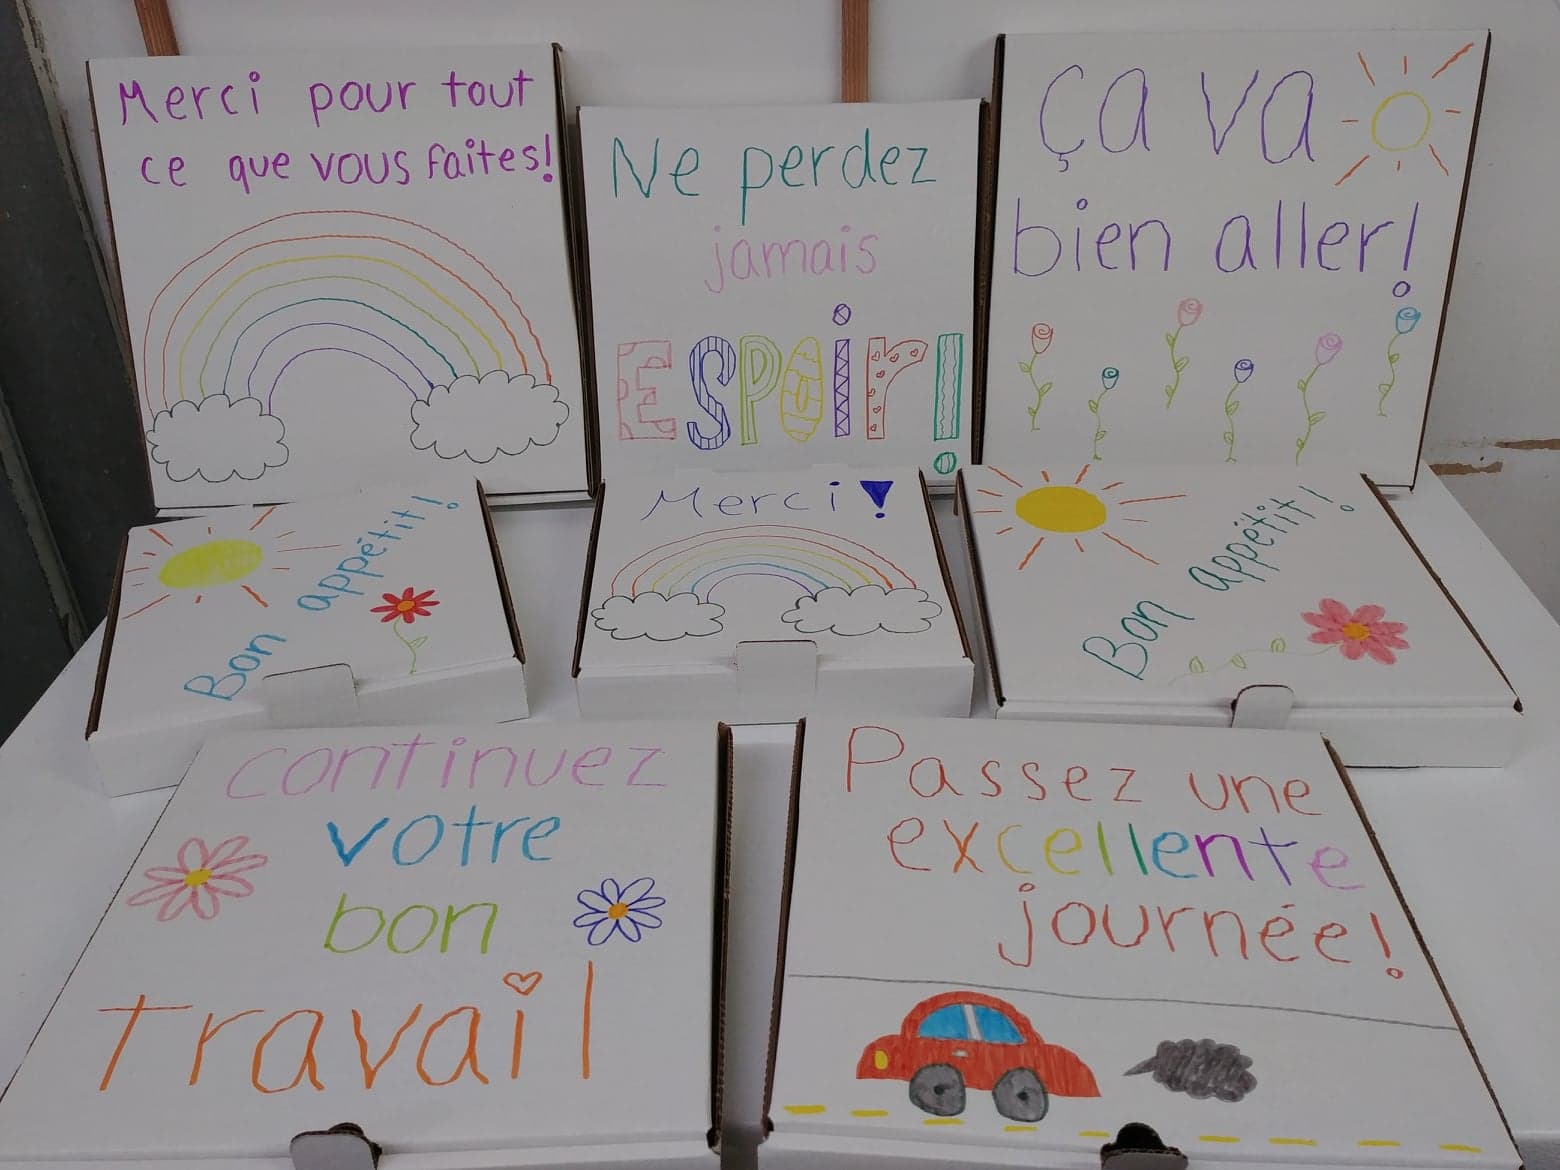 Merci pour tout
ce que vous faites!
Ne perdez
jamais
ESPOir!
ça va
bien aller!
Bon appétit!
Merci!
Bon appétit!
continuez
votre
bon
travail
Passez une
excellente
journée!